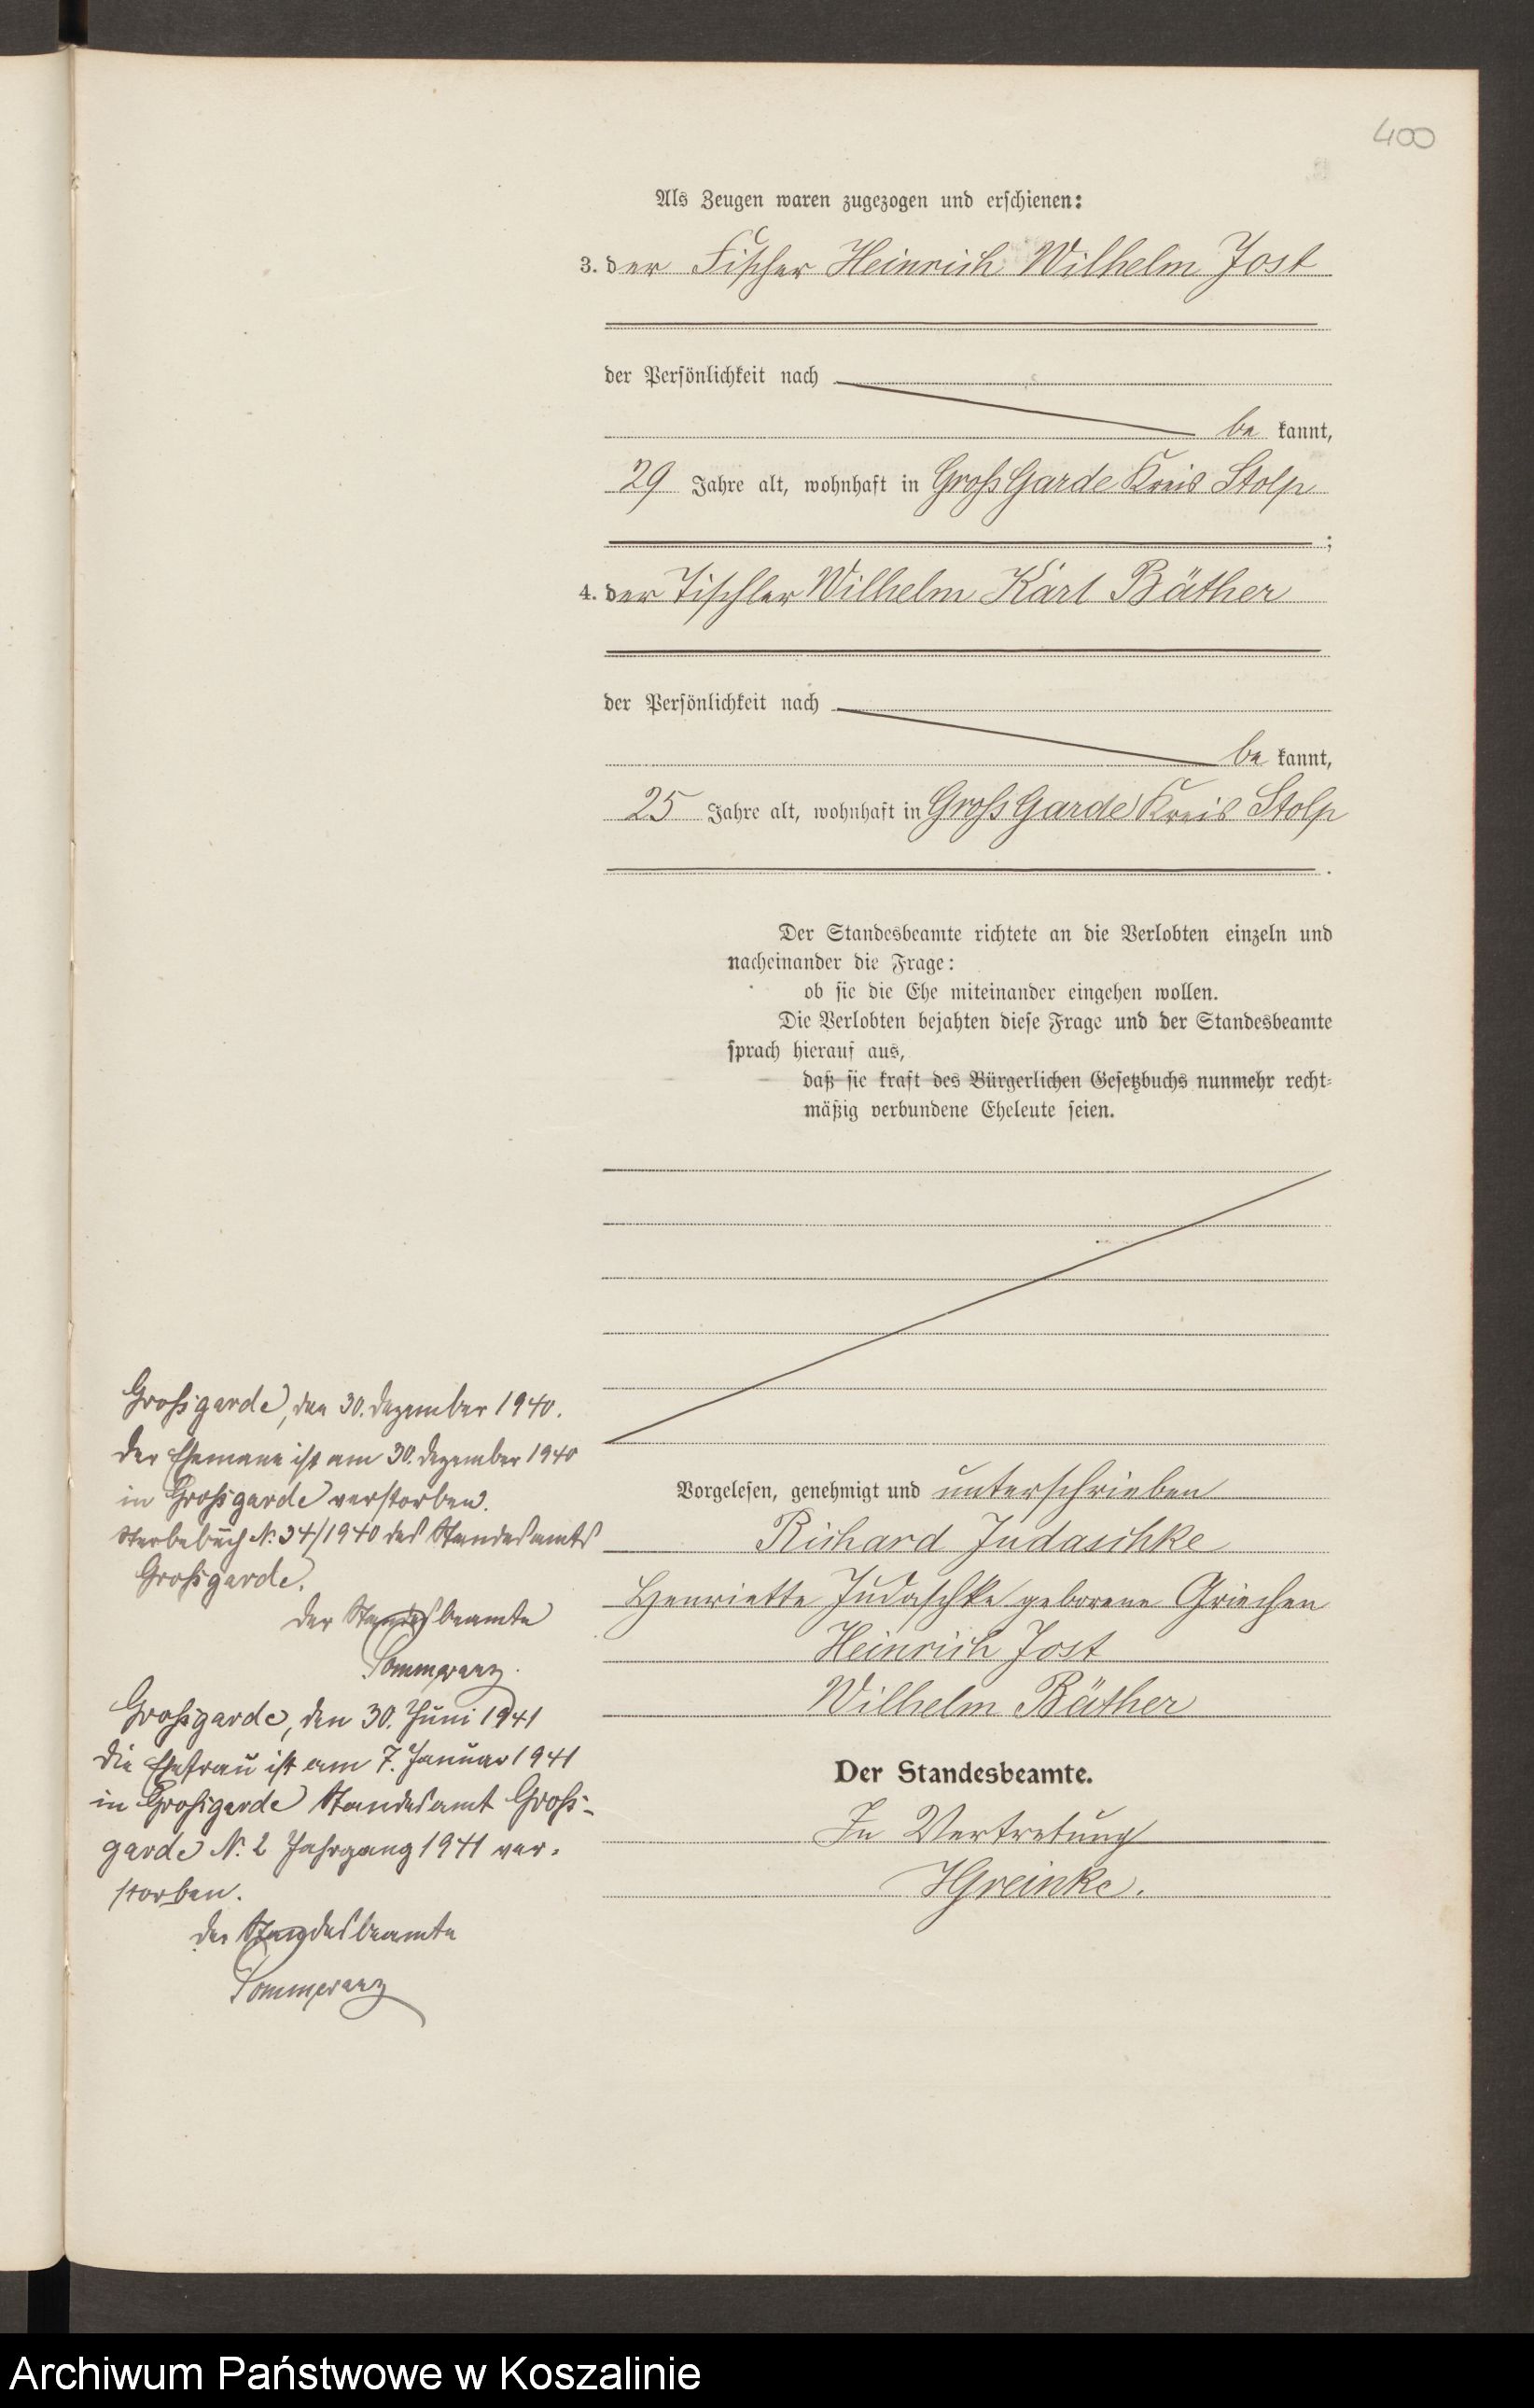 400
Als Zeugen waren zugezogen und erschienen:
3. der Fischer Heinrich Wilhelm Jost
der Persönlichkeit nach
be kannt,
29 Jahre alt, wohnhaft in Groß Garde Kreis Stolp
;
4. der Tischler Wilhelm Karl Bäther
der Persönlichkeit nach
be kannt,
25 Jahre alt, wohnhaft in Groß Garde Kreis Stolp
.
Der Standesbeamte richtete an die Verlobten einzeln und
nacheinander die Frage:
ob sie die Ehe miteinander eingehen wollen.
Die Verlobten bejahten diese Frage und der Standesbeamte
sprach hierauf aus,
daß sie kraft des Bürgerlichen Gesetzbuchs nunmehr recht-
mäßig verbundene Eheleute seien.
Vorgelesen, genehmigt und unterschrieben
Richard Judaschke
Henriette Judaschke geborene Griechen
Heinrich Jost
Wilhelm Bäther
Der Standesbeamte.
In Vertretung
HGreinke.
Großgarde, den 30. Dezember 1940.
Der Ehemann ist am 30. Dezember 1940
in Großgarde verstorben.
Sterbebuch N. 34/1940 des Standesamts
Großgarde.
Der Standesbeamte
Pommerenz.
Großgarde, den 30. Juni 1941
Die Ehefrau ist am 7. Januar 1941
in Großgarde Standesamt Groß-
garde N. 2 Jahrgang 1941 ver-
storben.
Der Standesbeamte
Pommerenz
Archiwum Państwowe w Koszalinie